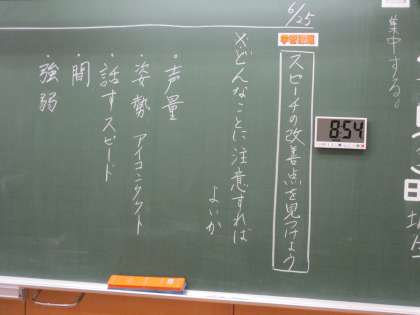 集中する。
6/25
学習課題
スピーチの改善点を見つけよう
8:54
※どんなことに注意すれば
よいか
・声量
・姿勢 アイコンタクト
・話すスピード
・間
・強弱